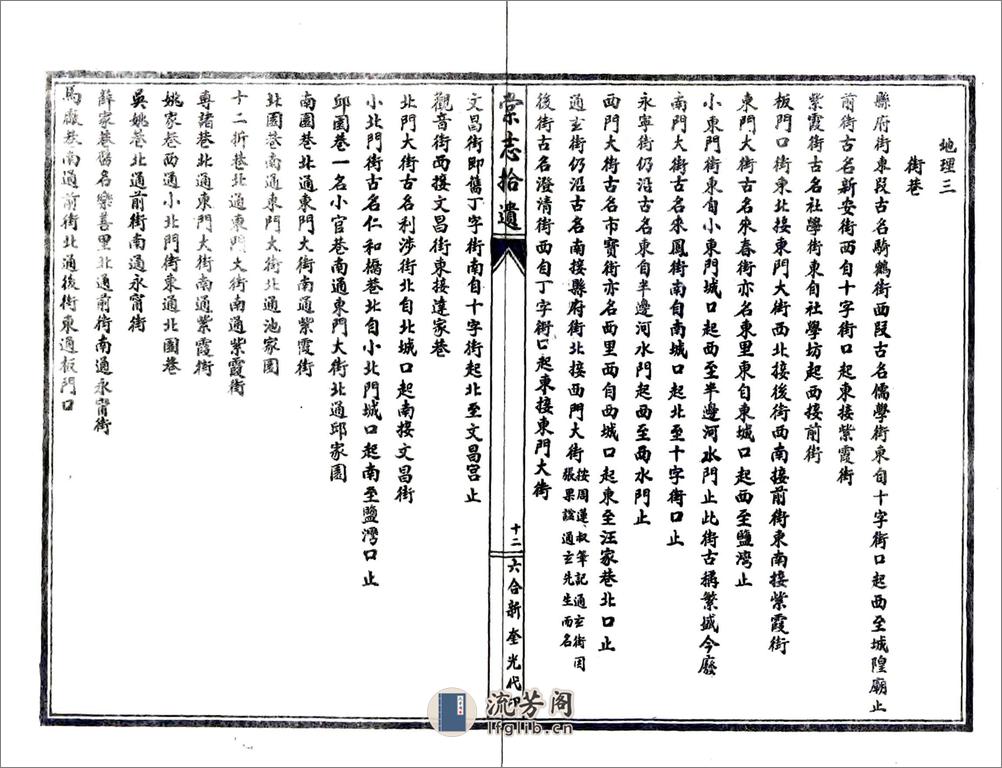 地理三
街巷
縣府街東段古名騎鶴街西段古名儒學街東自十字街口起西至城隍廟止
前街古名新安街西自十字街口起東接紫霞街
紫霞街古名社學街東自社學坊起西接前街
板門口街東北接東門大街西北接後街西南接前街東南接紫霞街
東門大街古名來春街亦名東里東自東城口起西至鹽灣止
小東門街東自小東門城口起西至半邊河水門止此街古稱繁盛今廢
南門大街古名來鳳街南自南城口起北至十字街口止
永寧街仍沿古名東自半邊河水門起西至西水門止
西門大街古名市寶街亦名西里西自西城口起東至汪家巷北口止
通玄街仍沿古名南接縣府街北接西門大街按周蓮叔筆記通玄街因張果諡通玄先生而名
後街古名澄清街西自丁字街口起東接東門大街
棠志拾遺
十二
六合新奎光代印
文昌街即舊丁字街南自十字街起北至文昌宮止
觀音街西接文昌街東接達家巷
北門大街古名利涉街北自北城口起南接文昌街
小北門街古名仁和橋巷北自小北門城口起南至鹽灣口止
邱園巷一名小官巷南通東門大街北通邱家園
南園巷北通東門大街南通紫霞街
北園巷南通東門大街北通池家園
十二折巷北通東門大街南通紫霞街
專諸巷北通東門大街南通紫霞街
姚家巷西通小北門街東通北園巷
吳姚巷北通前街南通永甯街
薛家巷舊名樂善里北通前街南通永甯街
馬廠巷南通前街北通後街東通板門口
流芳阁
lfglib.cn